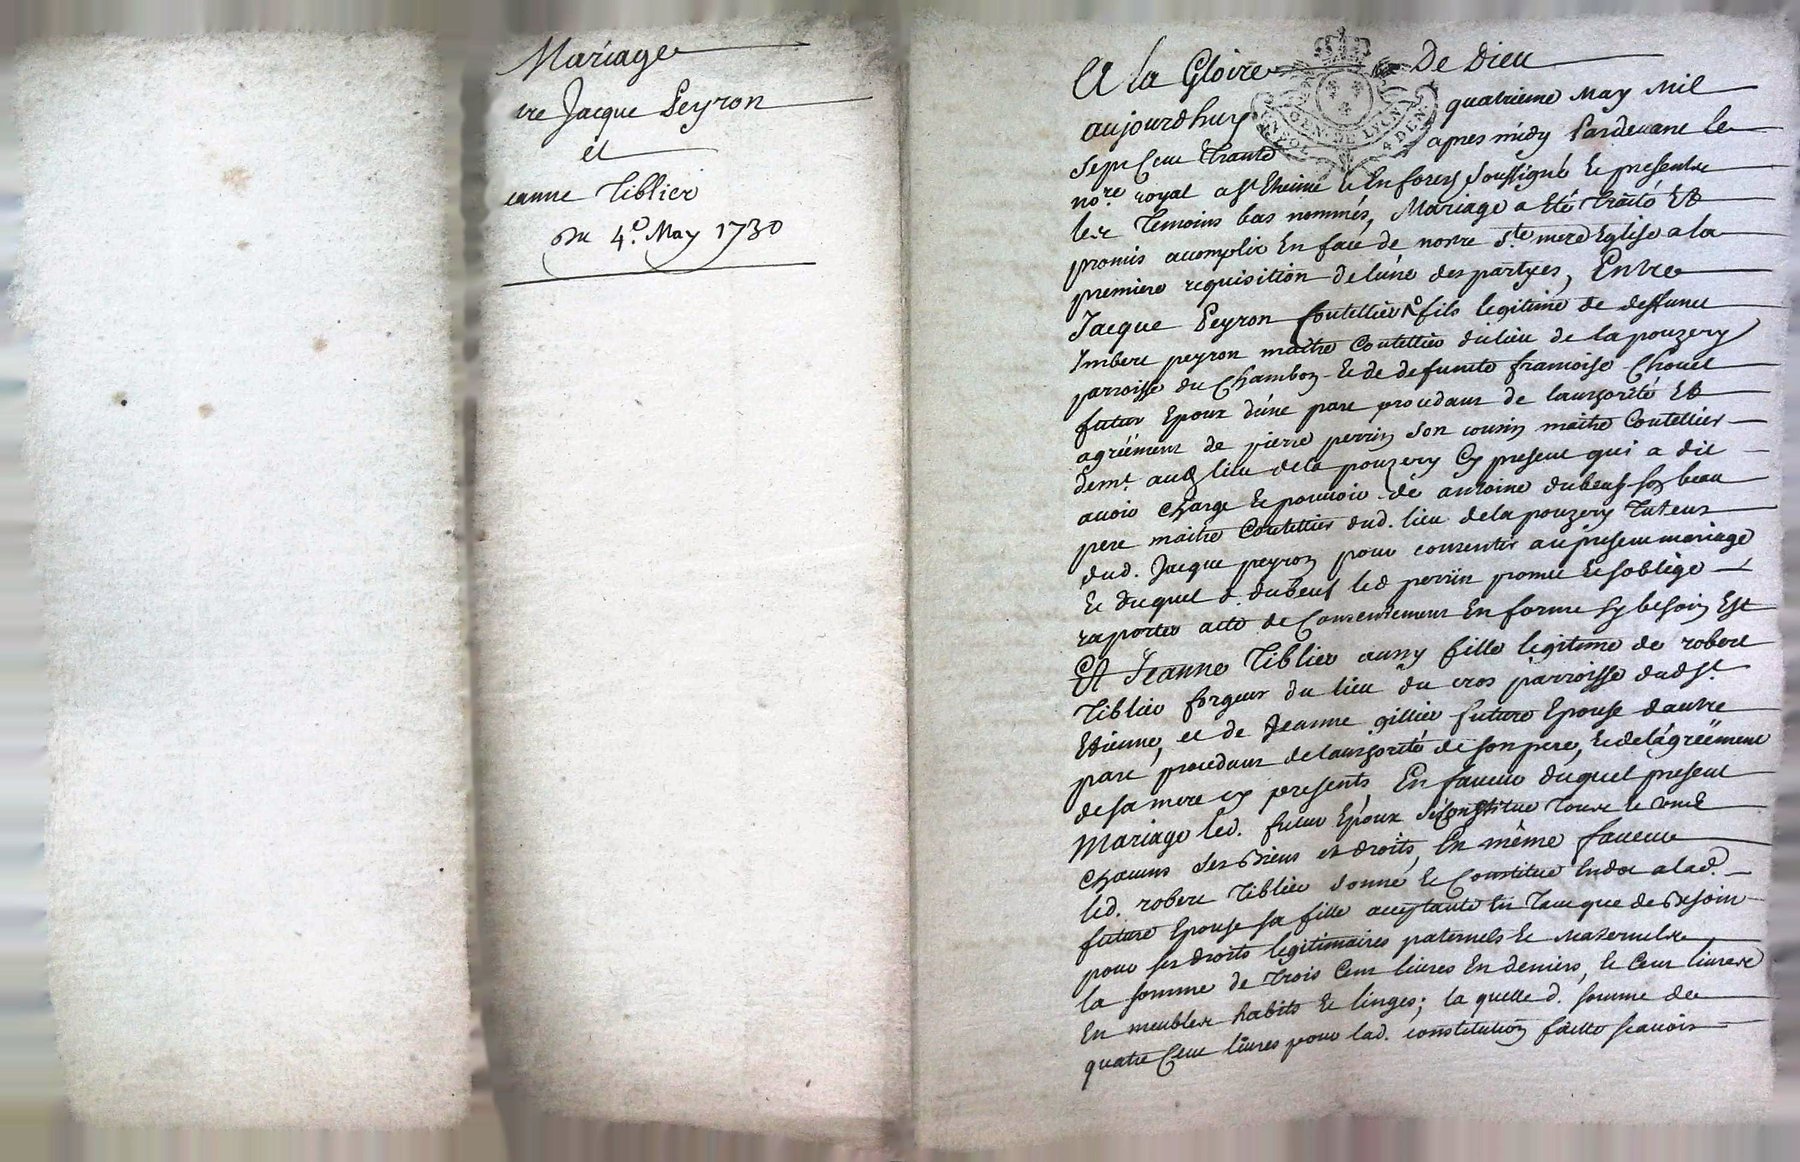 Mariage
tre Jacque Peyron
et
eanne Tiblier
du 4e. May 1730
A la Gloire De Dieu
GEN. DE LYON
4 DEN.
aujourdhuy quatrieme May Mil
sept Cent trante apres midy Pardevant le
no.re royal a St Etienne Et En forest soussigné Et presents
les Temoins bas nommés, Mariage a Eté Traité Et
promis accomplir En face de nostre Ste mere Eglise a la
premiere requisition de lune des partyes, Entre
Jacque Peyron Coutellier fils legitime de deffunt
Imbert peyron maitre Coutellier du lieu de la pouzery
parroisse du Chambon Et de defunte francoise Chovet
futur Epoux dune part procedant de lauthorité Et
agréement de pierre perrin son cousin maitre Coutellier
demt. aud lieu dela pouzery Cy present qui a dit
avoir charge Et pouvoir de antoine dubeuf son beau
pere maitre Coutellier dud. lieu dela pouzery Tuteur
dud. Jacque peyron pour consentir au present mariage
Et duquel d. dubeuf led perrin promet Et soblige
raporter acte de Consentement En forme sy besoin Est
Et Jeanne Tiblier aussy fille legitime de robert
Tiblier forgeur du lieu du cros parroisse dud St.
Etienne, et de Jeanne gillier future Epouse dautre
part, procedant de lauthorité de son pere, Et de lagréement
de sa mere cy presents, En faveur duquel present
Mariage led. futur Epoux se Constitue Tous Et uns
Chacuns ses Biens et droits, En même faveur
led. robert Tiblier donne Et Constitue En dot a lad.
future Epouse sa fille acceptante En Tant que de Besoin
pour ses droits legitimaires paternels Et Maternels
la somme de Trois Cent livres En deniers, Et Cent livres
En meubles habits Et linges; la quelle d. somme de
quatre Cent livres pour lad. constitution faitte scavoir